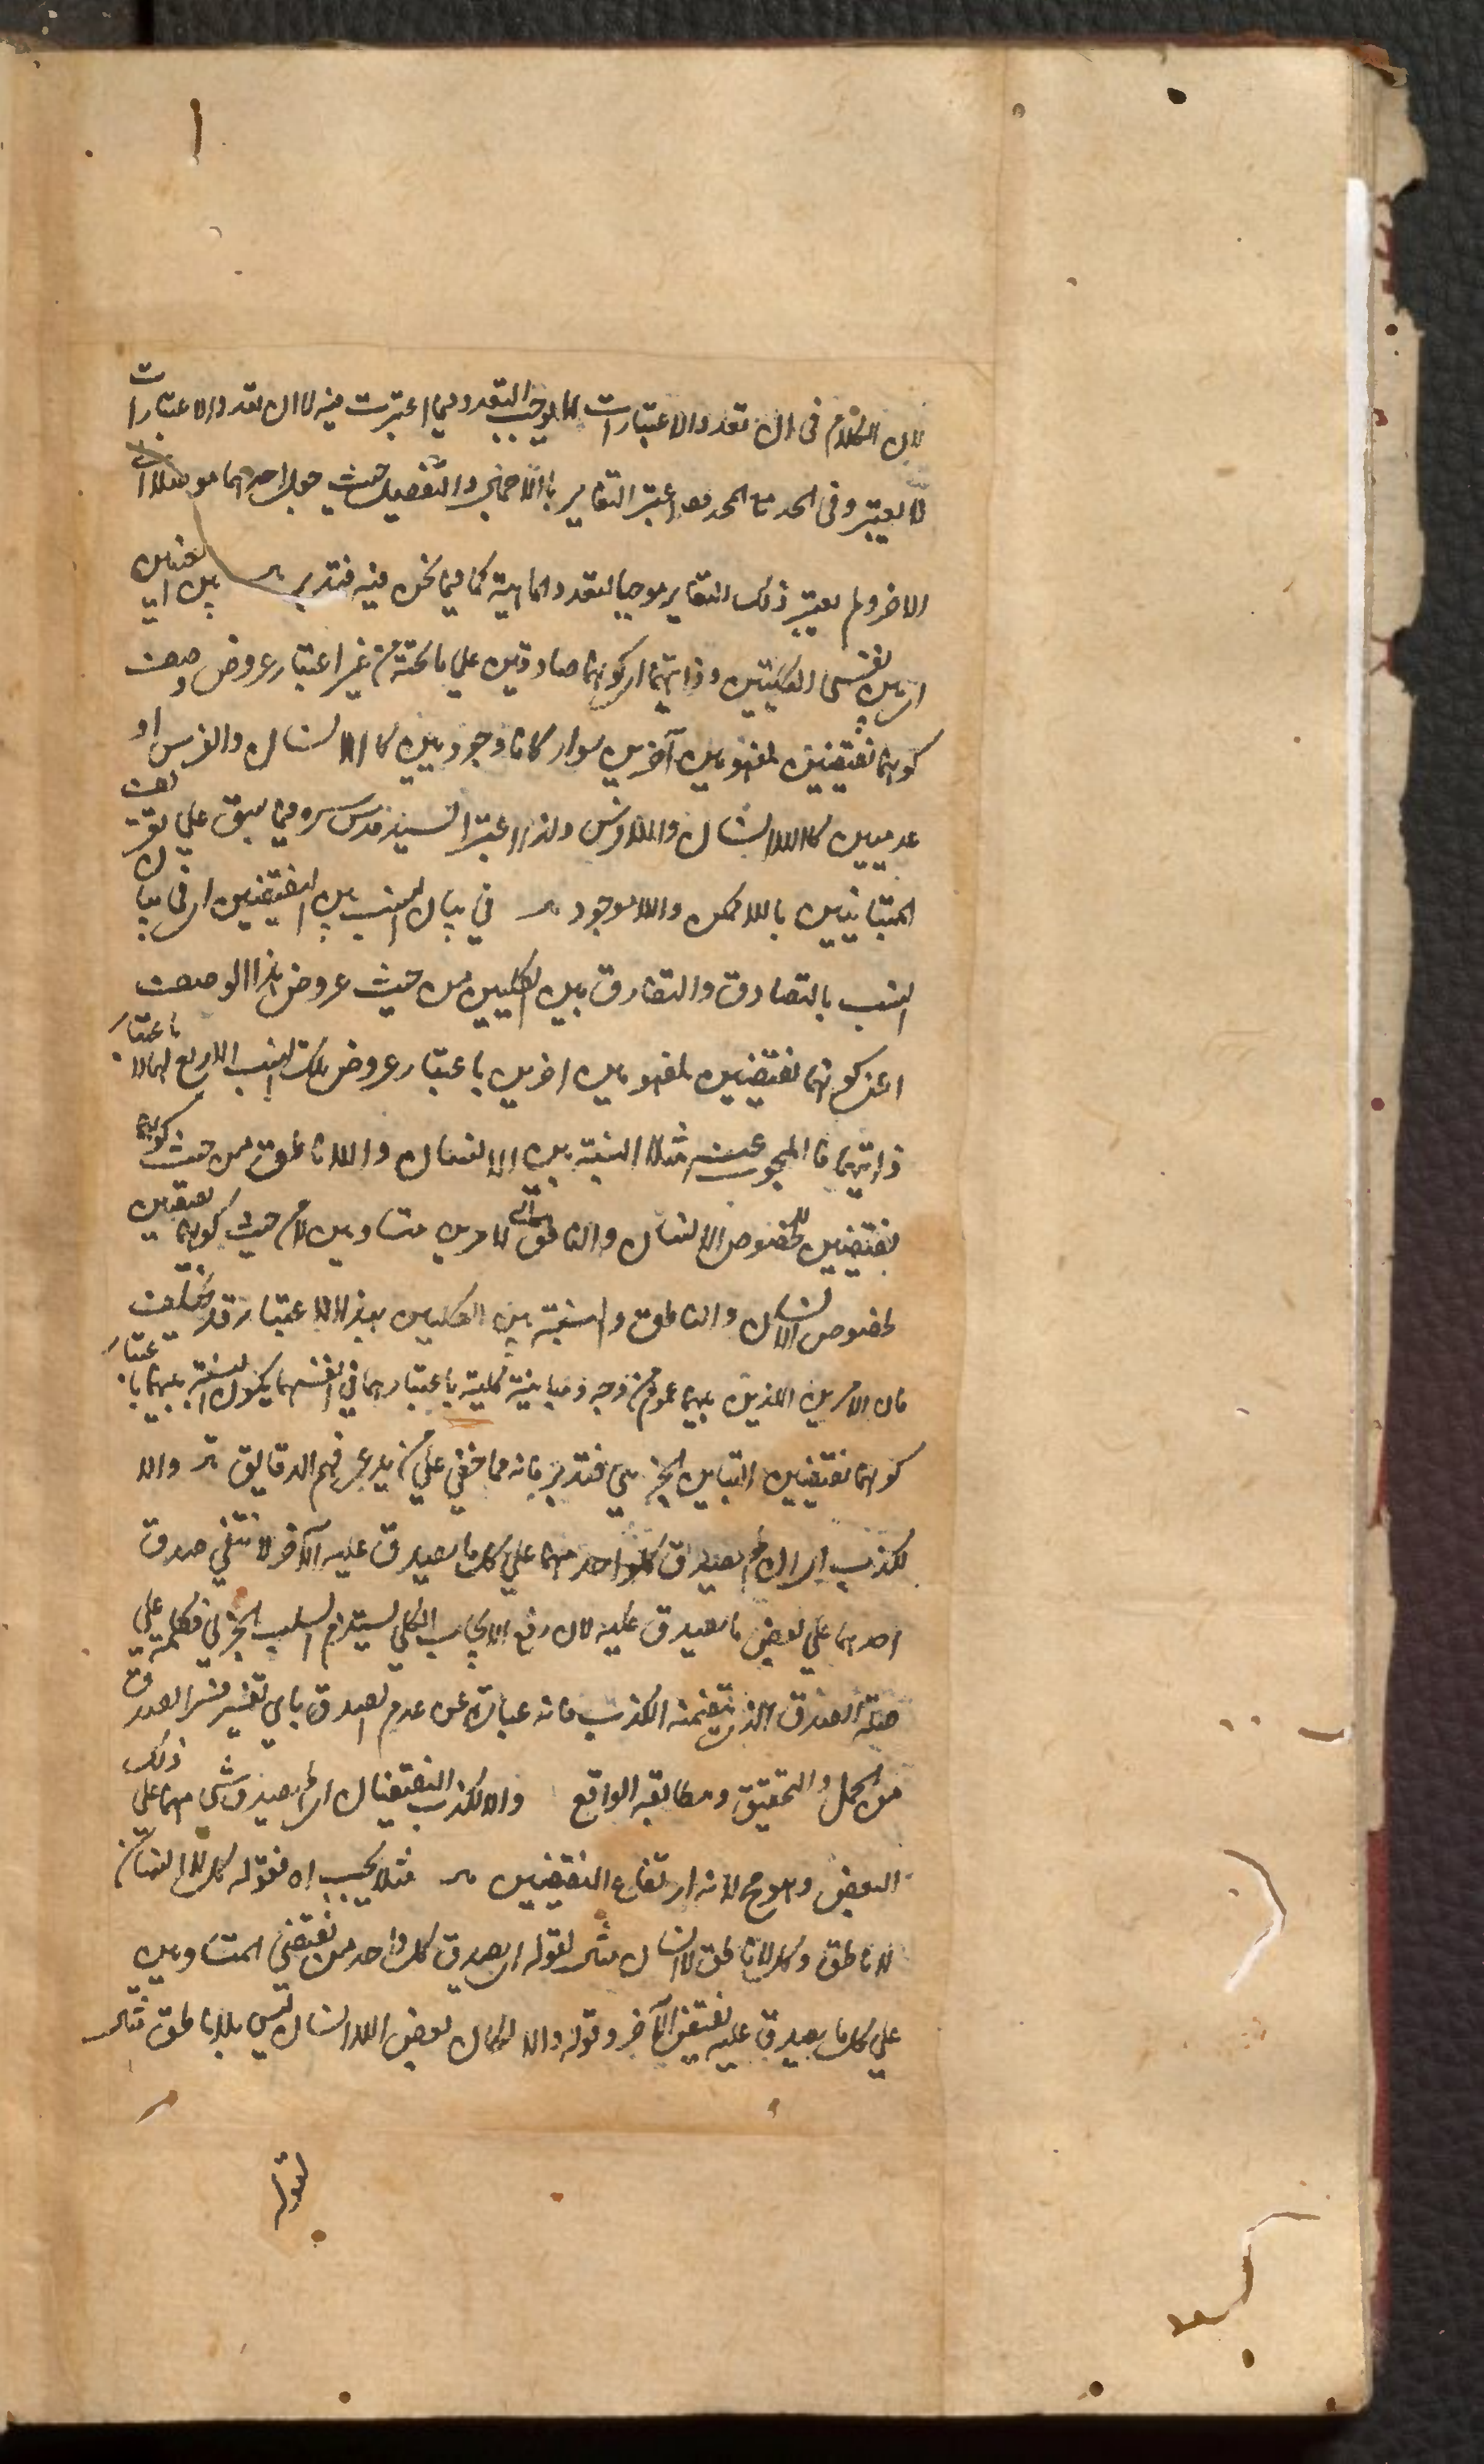 لان الكلام فى ان تعدد الاعتبارات لا يوجب التعدد فيما اعتبرت فيه لا ان تعدد الاعتبارات
لا يعتبر وفى الحد مع المحدود اعتبر التغاير بالاجمال والتفصيل حيث جعل احدهما موصلا الى
الاخر ولم يعتبر ذلك التغاير موجبا لتعدد الماهية كما فيما نحن فيه فتدبر بين العينين
اى بين نفسى الكليتين وذاتيهما اى كونهما صادقين على ما تحته من غير اعتبار عروض وصف
كونهما نقيضين لمفهومين آخرين سواء كانا وجوديين كالانسان والفرس او
عدميين كاللاانسان واللافرس ولذا اعتبر السيد قدس سره فيما سبق على تعريف
المتباينين باللاممكن واللاموجود فى بيان النسب بين النقيضين اى فى بيان
النسب بالتصادق والتفارق بين الكليين من حيث عروض هذا الوصف
اعنى كونهما نقيضين لمفهومين اخرين باعتبار عروض تلك النسب الاربع لهما لا باعتبار
ذاتيهما فالمبحوث عنه مثلا النسبة بين اللاانسان واللاناطق من حيث كونهما
نقيضين لخصوص الانسان والناطق لامرين متساويين لا من حيث كونهما نقيضين
لخصوص الانسان والناطق والنسبة بين الكليين بهذا الاعتبار قد تختلف
فان الامرين اللذين بينهما عموم من وجه ومباينة كلية باعتبارهما فى انفسهما يكون النسبة بينهما باعتبار
كونهما نقيضين التباين الجزئى فتدبر فانه مما خفى على من يدعى فهم الدقايق والا
لكذب اى ان لم يصدق كل واحد منهما على كل ما يصدق عليه الآخر لانتفى صدق
احدهما على بعض ما يصدق عليه لان رفع الايجاب الكلى يستلزم السلب الجزئى فكلمة على
صلة الصدق الذى تضمنه الكذب فانه عبارة عن عدم الصدق باى تفسير فسر الصدق
من الحمل والتحقيق ومطابقة الواقع والا لكذب النقيضان اى لم يصدق شئ منهما على ذلك
البعض وهو مح لانه ارتفاع النقيضين مثلا يجب اه فقوله كل لاانسان
لاناطق وكل لاناطق لاانسان مثال لقوله اى يصدق كل واحد من نقيضى المتساويين
على كل ما يصدق عليه نقيض الآخر وقوله والا لكان بعض اللاانسان ليس بلاناطق مثال
لقوله